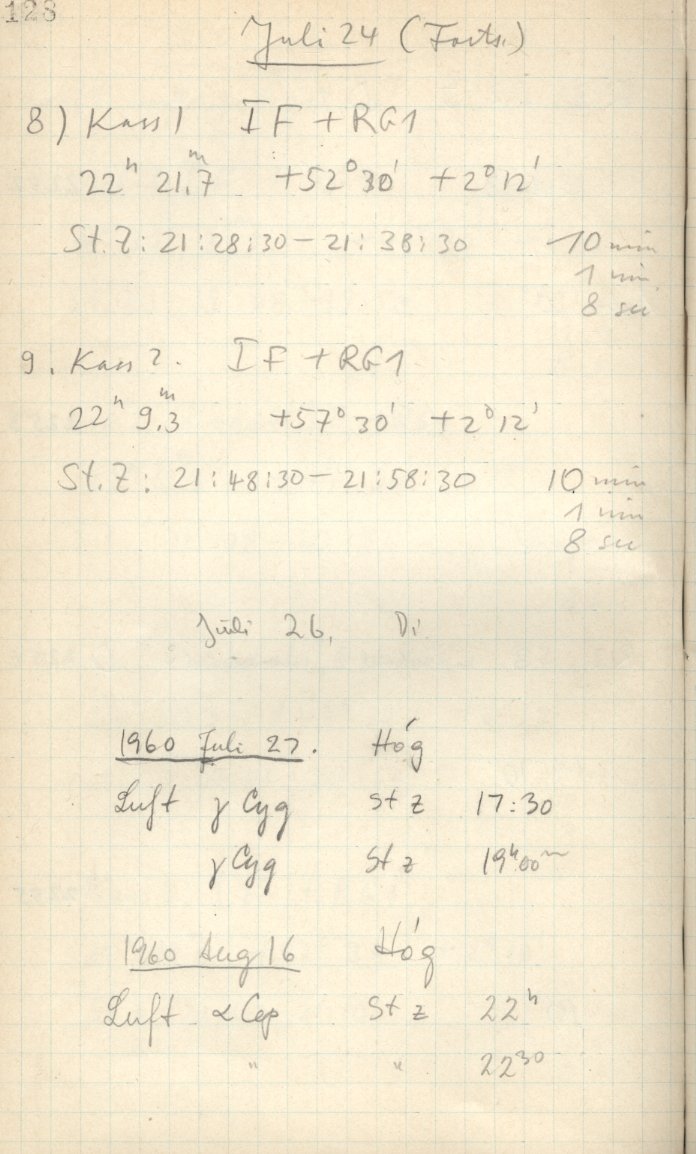 128
Juli 24 (Forts.)
8) Kass 1 IF + RG1
22ʰ 21,ᵐ7 +52°30' +2°12'
St.Z: 21:28:30 – 21:38:30 10 min
1 min
8 sec
9. Kass 2. IF + RG1
22ʰ 9,ᵐ3 +57°30' +2°12'
St.Z: 21:48:30 – 21:58:30 10 min
1 min
8 sec
Juli 26, Di
1960 Juli 27. Høg
Luft γ Cyg St z 17:30
γ Cyg St z 19ʰ00ᵐ
1960 Aug 16 Høg
Luft α Cep St z 22ʰ
" " 22³⁰